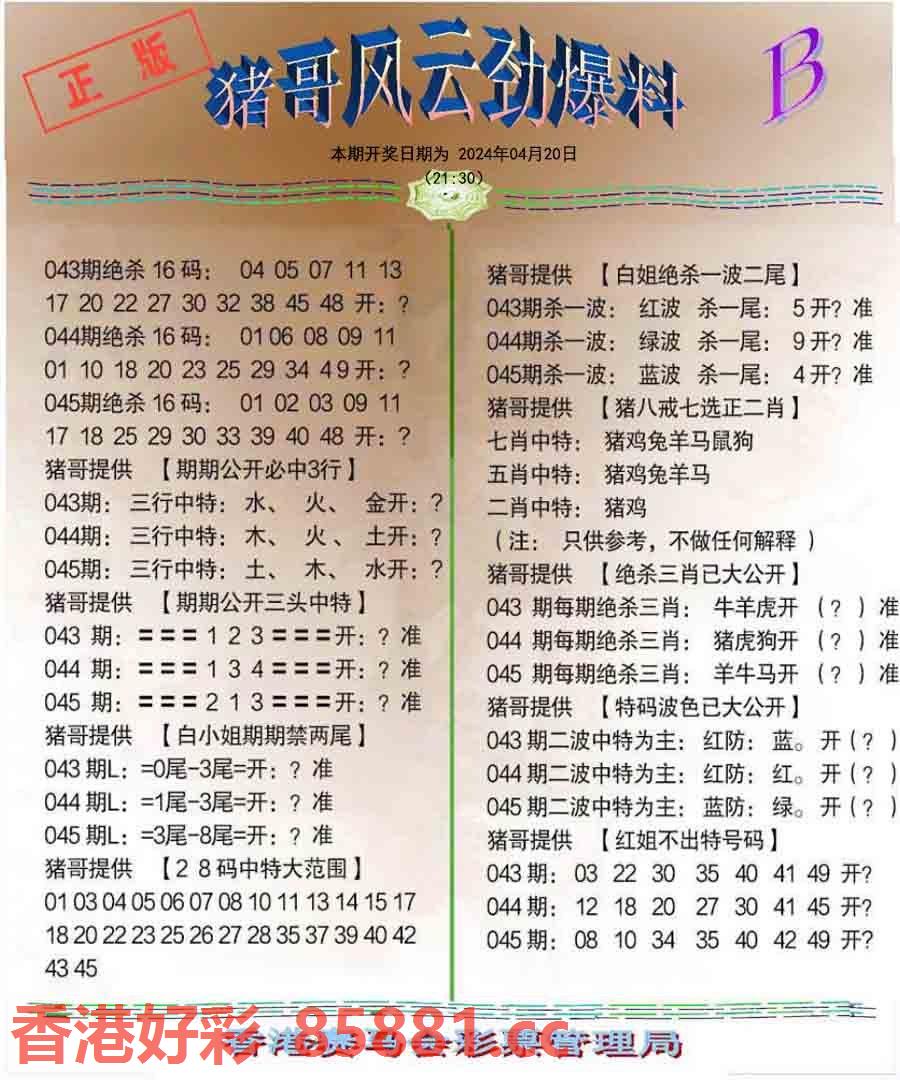 正版
猪哥风云劲爆料
B
本期开奖日期为 2024年04月20日
(21:30)
043期绝杀 16 码： 04 05 07 11 13
17 20 22 27 30 32 38 45 48 开：?
044期绝杀 16 码： 01 06 08 09 11
01 10 18 20 23 25 29 34 49 开：?
045期绝杀 16 码： 01 02 03 09 11
17 18 25 29 30 33 39 40 48 开：?
猪哥提供 【期期公开必中3行】
043期：三行中特：水、 火、 金开：?
044期：三行中特：木、 火 、 土开：?
045期：三行中特：土、 木、 水开：?
猪哥提供 【期期公开三头中特】
043 期：=== 1 2 3 ===开：? 准
044 期：=== 1 3 4 ===开：? 准
045 期：=== 2 1 3 ===开：? 准
猪哥提供 【白小姐期期禁两尾】
043 期L：=0尾-3尾=开：? 准
044 期L：=1尾-3尾=开：? 准
045 期L：=3尾-8尾=开：? 准
猪哥提供 【2 8 码中特大范围】
01 03 04 05 06 07 08 10 11 13 14 15 17
18 20 22 23 25 26 27 28 35 37 39 40 42
43 45
猪哥提供 【白姐绝杀一波二尾】
043期杀一波： 红波 杀一尾： 5 开? 准
044期杀一波： 绿波 杀一尾： 9 开? 准
045期杀一波： 蓝波 杀一尾： 4 开? 准
猪哥提供 【猪八戒七选正二肖】
七肖中特： 猪鸡兔羊马鼠狗
五肖中特： 猪鸡兔羊马
二肖中特： 猪鸡
（注： 只供参考，不做任何解释 ）
猪哥提供 【绝杀三肖已大公开】
043 期每期绝杀三肖： 牛羊虎开 （? ）准
044 期每期绝杀三肖： 猪虎狗开 （? ）准
045 期每期绝杀三肖： 羊牛马开 （? ）准
猪哥提供 【特码波色已大公开】
043 期二波中特为主： 红防： 蓝。 开（? ）
044 期二波中特为主： 红防： 红。 开（? ）
045 期二波中特为主： 蓝防： 绿。 开（? ）
猪哥提供 【红姐不出特号码】
043 期： 03 22 30 35 40 41 49 开?
044 期： 12 18 20 27 30 41 45 开?
045 期： 08 10 34 35 40 42 49 开?
香港好彩 85881.cc
香港赛马会彩票管理局